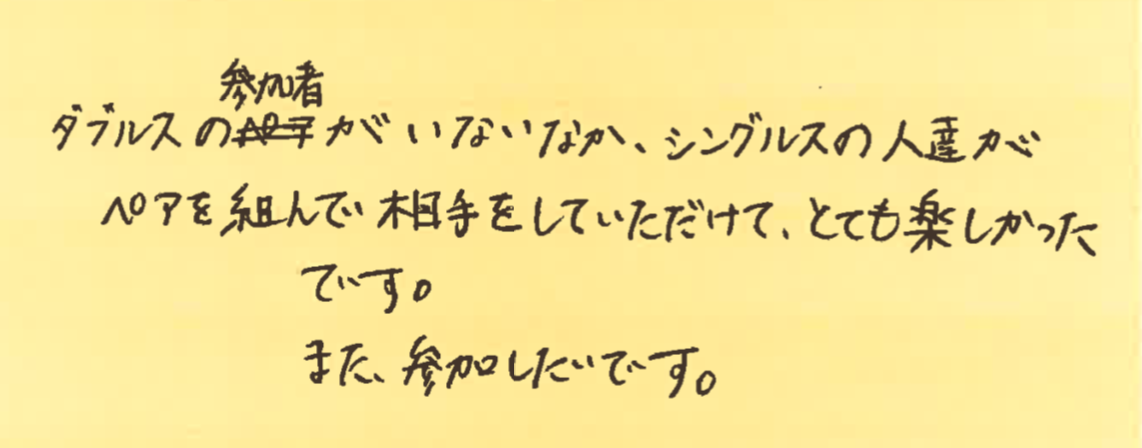 ダブルスの参加者がいないなか、シングルスの人達が
ペアを組んで相手をしていただけて、とても楽しかった
です。
また、参加したいです。